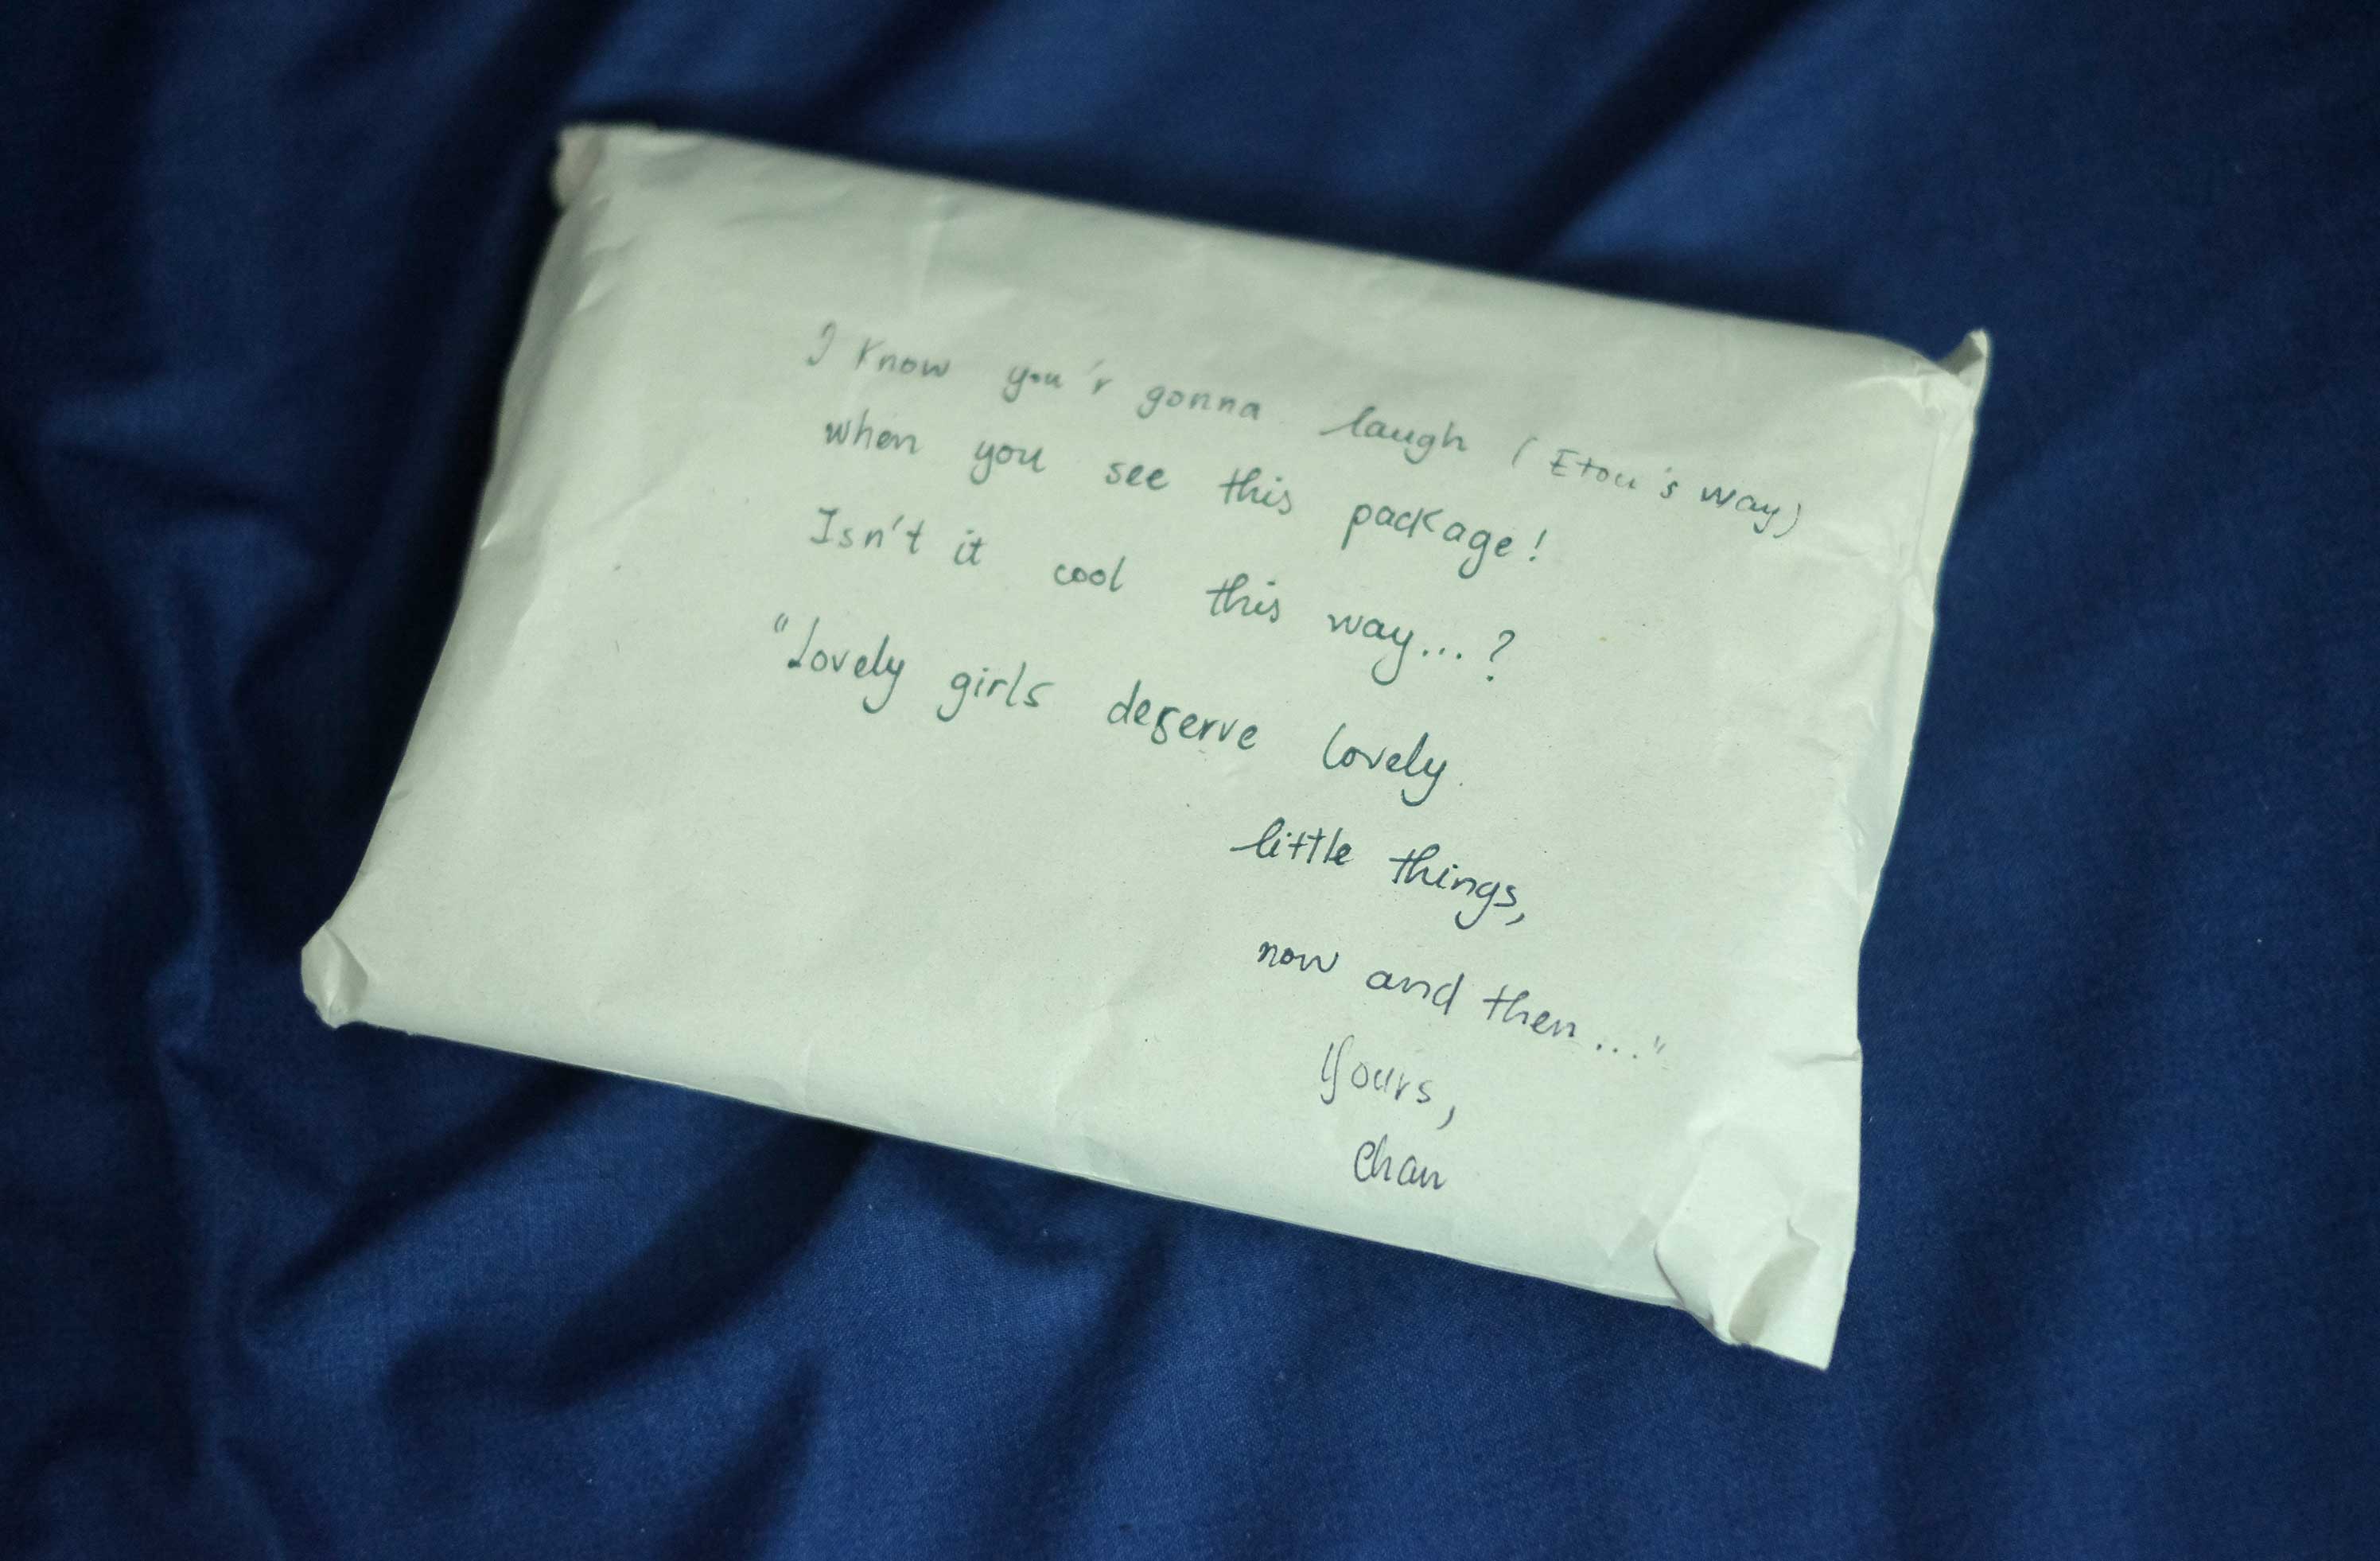 I know you'r gonna laugh (Etou's way)
when you see this package!
Isn't it cool this way...?
"Lovely girls deserve lovely
little things,
now and then..."
Yours,
Chau